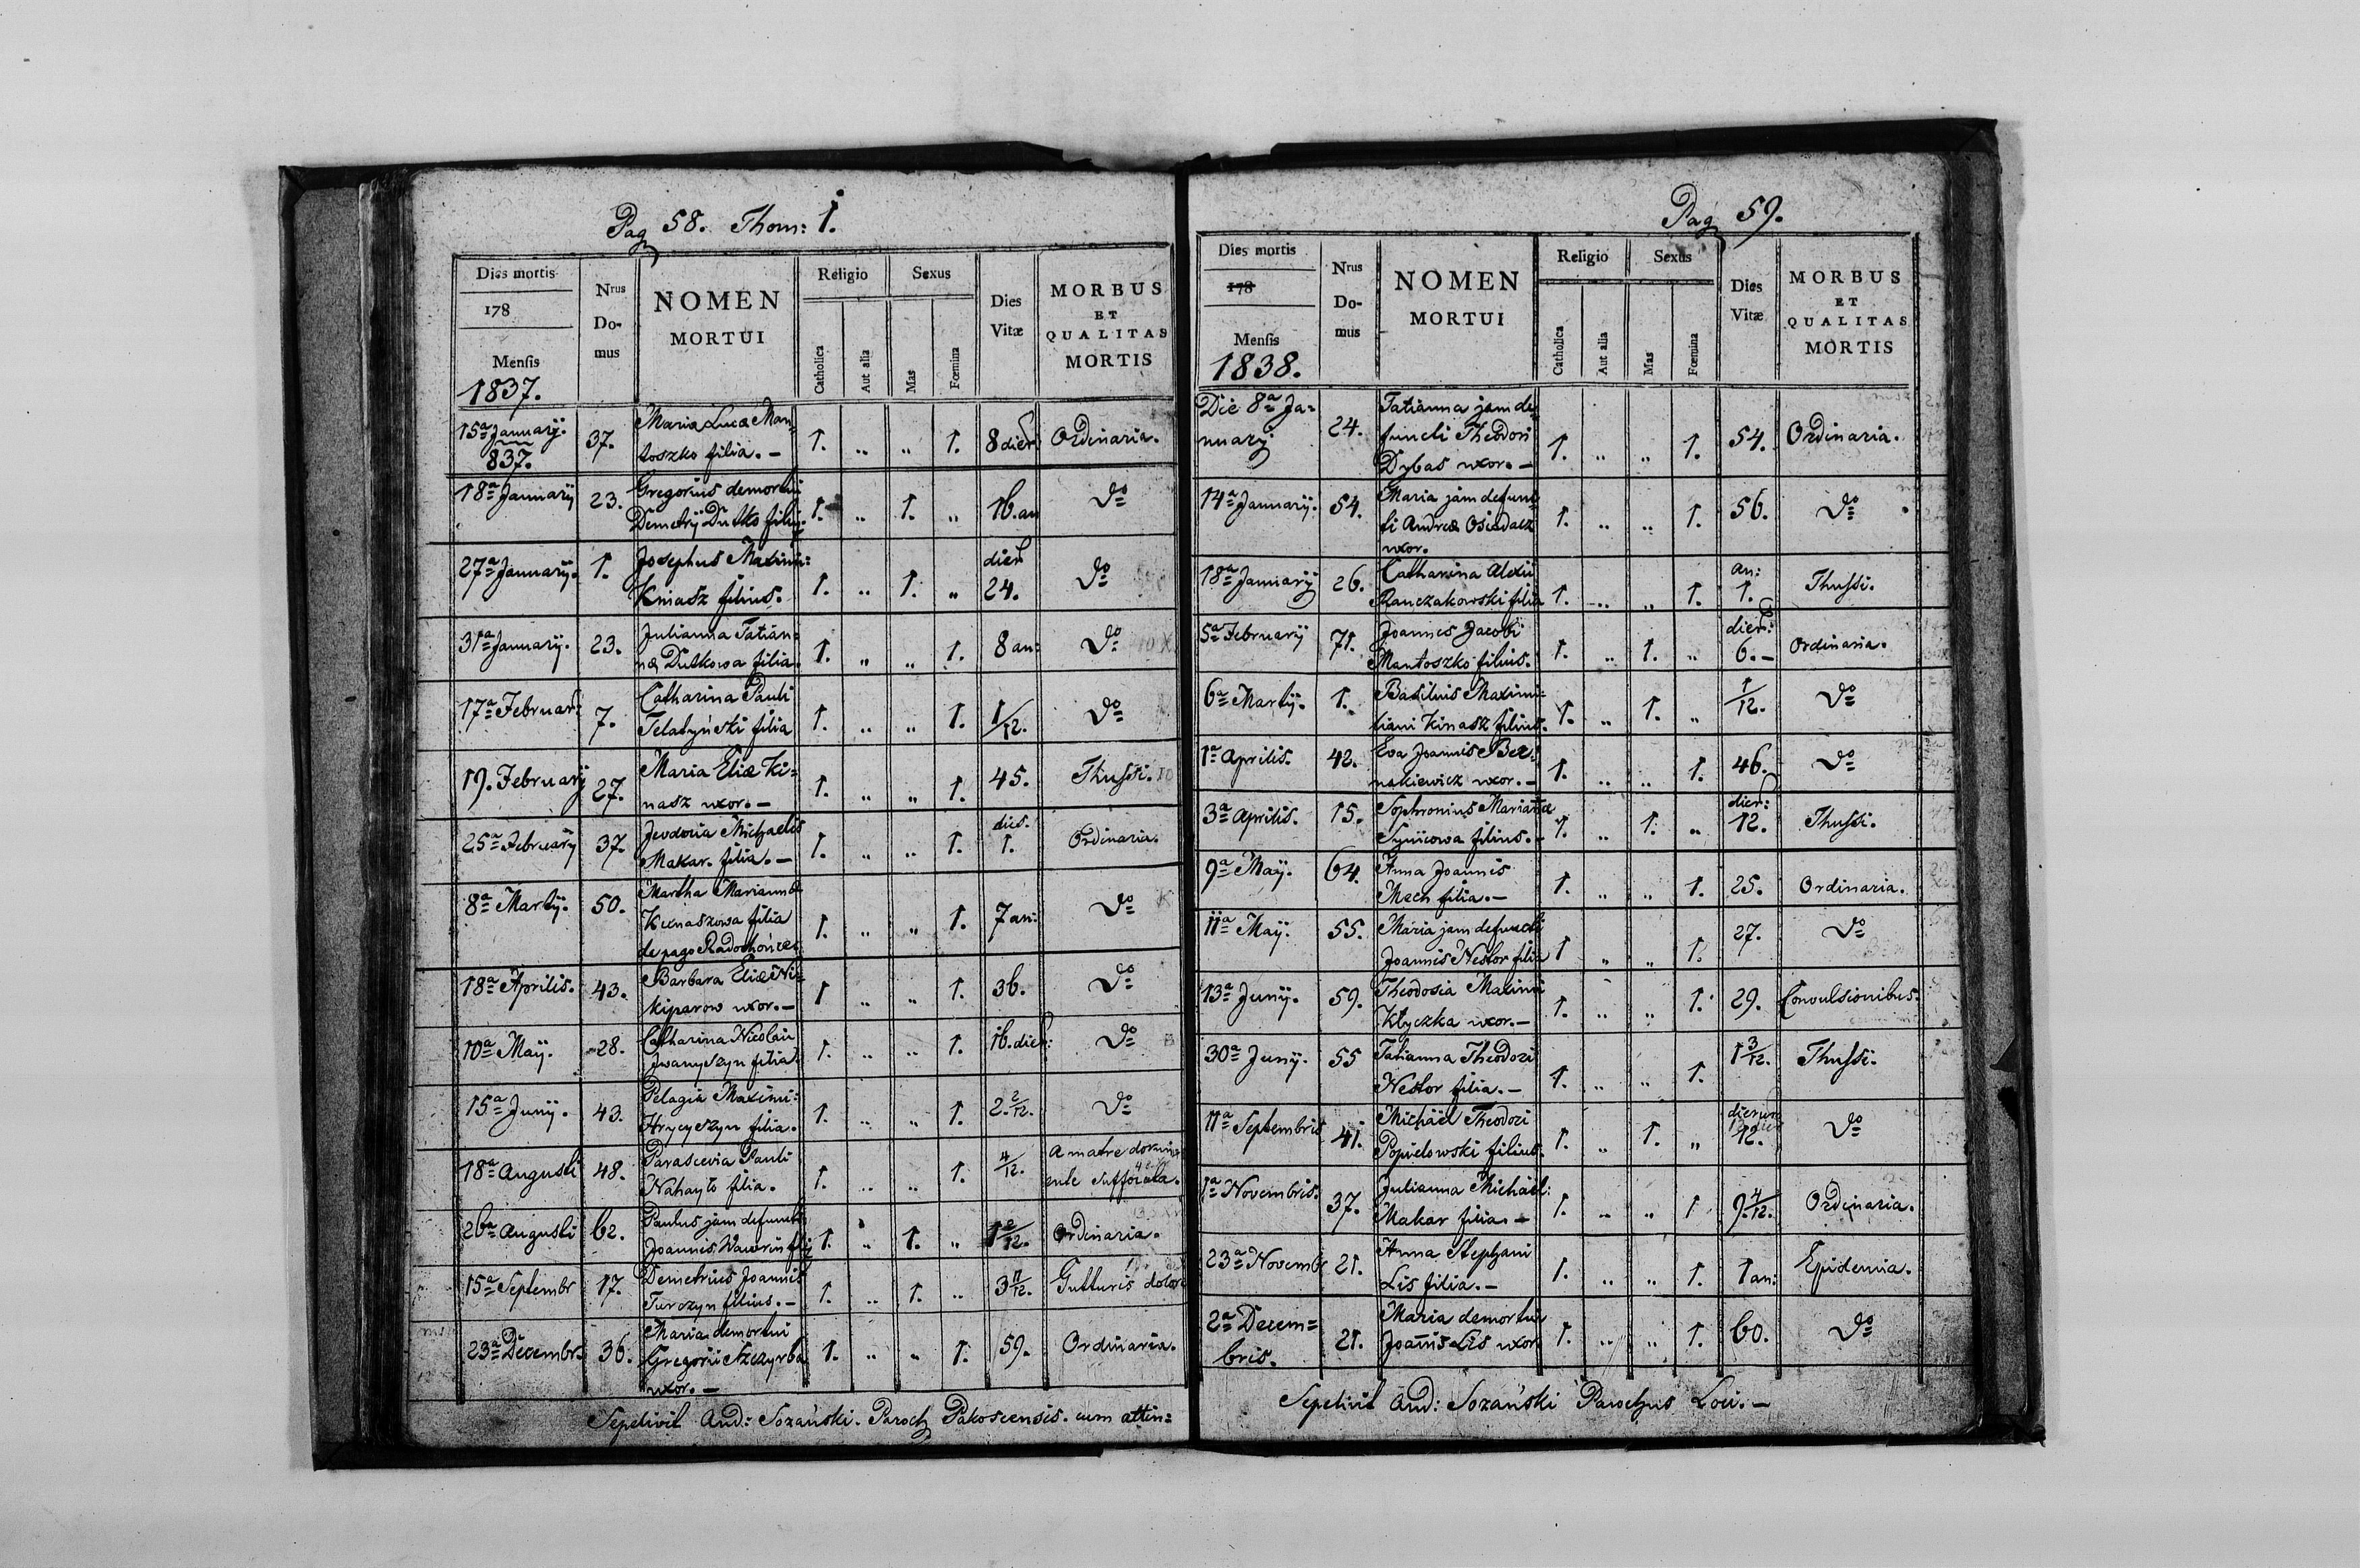 Pag 58. Thom: 1.
Dies mortis
178
Mensis
1837.
Nrus Do- mus
NOMEN MORTUI
Religio
Catholica
Aut alia
Sexus
Mas
Fœmina
Dies Vitæ
MORBUS ET QUALITAS MORTIS
15a January. 837. 37. Maria Lucæ Man= 1. „ „ 1. 8 dier: Ordinaria.
toszko filia. –
18a January 23. Gregorius demortui 1. „ 1. „ 16. an Do
Demetrij Dutko filius.
27a January. 1. Josephus Maximi: 1. „ 1. „ dier 24. Do
Kniasz filius.
31a January. 23. Julianna Tatian= 1. „ „ 1. 8 an: Do
næ Dutkowa filia.
17a Februar: 7. Catharina Pauli 1. „ „ 1. 1/12. Do
Telatyński filia
19. February 27. Maria Eliæ Ki= 1. „ „ 1. 45. Thussi.
nasz uxor. –
25a February 37. Jevdoria Michaelis 1. „ „ 1. dies. 1. Ordinaria.
Makar. filia. –
8a Martij. 50. Martha Mariannæ 1. „ „ 1. 7 an: Do
Kienaszowa filia
de pago
18a Aprilis. 43. Barbara Eliæ Ni= 1 „ „ 1. 36. Do
kiparow uxor. –
10a Maij. 28. Catharina Nicolai 1. „ „ 1. 16. dier: Do
Jwanyszyn filia.
15a Junij. 43. Pelagia Maximi: 1. „ „ 1. 2. 2/12. Do
Hrycyszyn filia.
18a Augusti 48. Parascevia Pauli 1. „ „ 1. 4/12. A matre dormi=
Nahayło filia. ente suffocata.
26a Augusti 62. Paulus jam defuncti 1. „ 1. „ 1 2/12. Ordinaria.
Joannis Wawrin filij
15a Septembr 17. Demetrius Joannis 1. „ 1. „ 3 11/12. Gutturis dolor
Turczyn filius. –
23a Decembr. 36. Maria demortui 1. „ „ 1. 59. Ordinaria.
Gregorii Szczyrba
uxor. –
Sepelivit And: Sozański. Paroch Pakoscensis. cum attin=
Pag 59.
Dies mortis
178
Mensis
1838.
Nrus Do- mus
NOMEN MORTUI
Religio
Catholica
Aut alia
Sexus
Mas
Fœmina
Dies Vitæ
MORBUS ET QUALITAS MORTIS
Die 8a Ja= 24. Tatianna jam de 1. „ „ 1. 54. Ordinaria.
nuarij functi Theodori
Dybas uxor. –
14a January. 54. Maria jam defunc= 1. „ „ 1. 56. Do
ti Andreæ Osiadacz
uxor.
18a January 26. Catharina Alexii 1. „ „ 1. an: 1. Thussi.
Ranczakowski filia
5a February 71. Joannes Jacobi 1. „ 1. „ dier: 6. – Ordinaria.
Mantoszko filius.
6a Martij. 1. Basilius Maximi= 1. „ 1. „ 1/12. Do
liani Kinasz filius.
1a Aprilis. 42. Eva Joannis Ber= 1. „ „ 1. 46. Do
nakiewicz uxor. –
3a Aprilis. 15. Sophronius Mariannæ 1. „ 1. „ dier: 12. Thussi.
filius. –
9a Maij. 64. Anna Joannis 1. „ „ 1. 25. Ordinaria.
Mech filia. –
11a Maij. 55. Maria jam defuncti 1 „ „ 1. 27. Do
Joannis Nestor filia
13a Junij. 59. Theodosia Maximi 1. „ „ 1. 29. Convulsionibus.
Kłyczka uxor. –
30a Junij. 55 Tatianna Theodori 1. „ „ 1. 1 3/12. Thussi.
Nestor filia. –
11a Septembris 41. Michäel Theodori 1. „ 1. „ dierum 12. Do
Popielowski filius.
1a Novembris. 37. Julianna Michäel: 1. „ „ 1 9. 4/12. Ordinaria.
Makar filia. –
23a Novemb 21. Anna Stephani 1. „ „ 1. 1 an: Epidemia.
Lis filia. –
2a Decem= 21. Maria demortui 1. „ „ 1. 60. Do
bris. Joañis Lis uxor
Sepelivit And: Sozański Parochus Loci. –